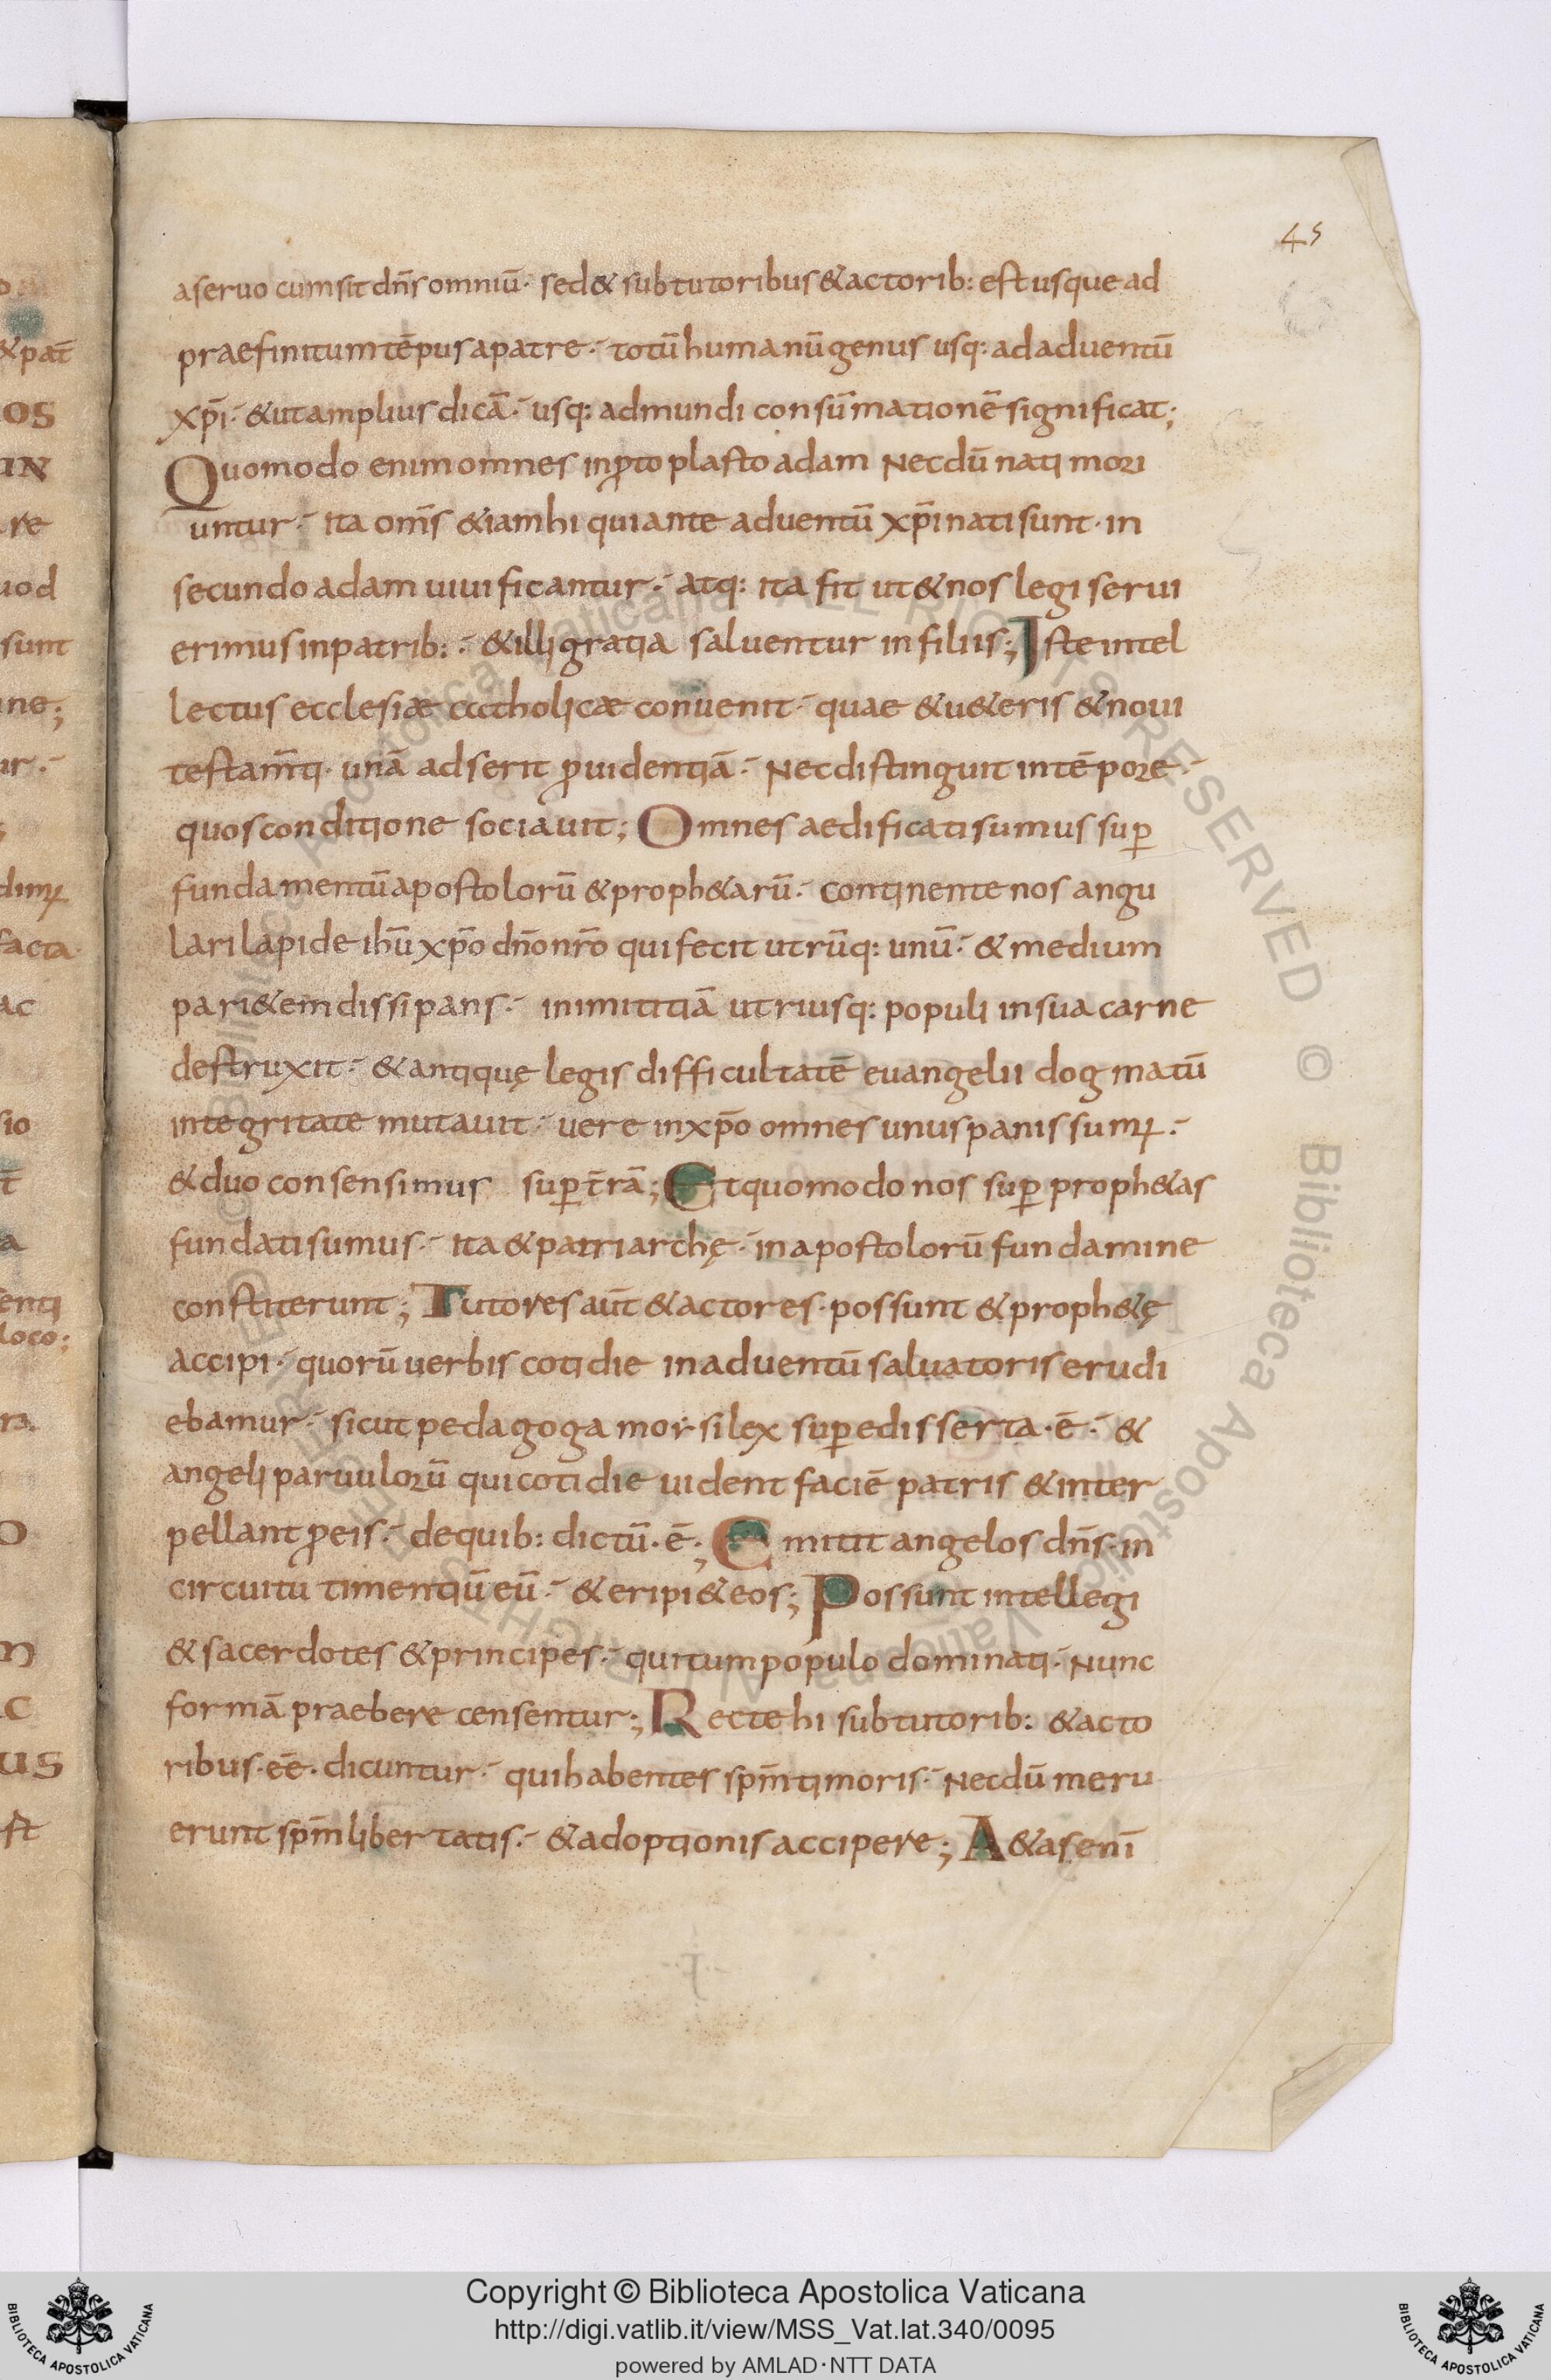 45
aseruo cumsit dn̄s omniū· sed& subtutoribus &actorib: est usque ad
praefinitum tēpus apatre·- totū humanū genus usq: ad aduentū
xp̄i·- & ut amplius dicā·- usq: ad mundi consūmationē significat;
Quomodo enim omnes inp̄to plasto adam Necdū nati mori
untur·- ita om̄s & iam hi qui ante aduentū xp̄i nati sunt· in
secundo adam uiuificantur·- atq: ita fit ut & nos legi serui
erimus in patrib:·- & illi gratia saluentur in filiis; Iste intel
lectus ecclesiæ ccctholicæ conuenit·- quae & u&eris & noui
testam̄ti· unā adserit p̄uidentiā·- Nec distinguit in tēpore·-
quos conditione sociauit; Omnes aedificati sumus sup̄
fundamentū apostolorū & proph&arū·- continente nos angu
lari lapide ihū xp̄o dn̄o nr̄o qui fecit utrūq: unū·- & medium
pari&em dissipans·- inimititiā utriusq: populi in sua carne
destruxit·- & antiquę legis difficultatē euangelii dogmatū
integritate mutauit·- uere in xp̄o omnes unus panis sumꝰ·-
& duo consensimus sup̄ t̄rā; Et quomodo nos sup̄ proph&as
fundati sumus·- ita & patriarchę·- in apostolorū fundamine
constiterunt; Tutores aūt & actores· possunt & proph&ę
accipi·- quorū uerbis cotidie in aduentū saluatoris erudi
ebamur·- sicut pedagoga morsi lex sup̄ edisserta·ē·- &
angeli paruulorū qui cotidie uident faciē patris & inter
pellant p̄ eis·- de quib: dictū·ē·; Emitit angelos dn̄s· in
circuitu timentiū eū·- & eripi& eos; Possunt intellegi
& sacerdotes & principes·- qui tum populo dominati·- Nunc
formā praebere censentur; Recte hi sub tutorib: & acto
ribus·eē· dicuntur·- qui habentes sp̄m timoris·- Necdū meru
erunt sp̄m libertatis·- & adoptionis accipere; A&as enī
& pat̄
os
IN
re
uod
sunt
ne;
ur·-
dimꝰ
facta
ac
sio
t̄
a
enti
loco;
n
c
us
st
© Biblioteca Apostolica Vaticana ALL RIGHTS RESERVED
Copyright © Biblioteca Apostolica Vaticana
http://digi.vatlib.it/view/MSS_Vat.lat.340/0095
powered by AMLAD·NTT DATA
BIBLIOTECA APOSTOLICA VATICANA
BIBLIOTECA APOSTOLICA VATICANA